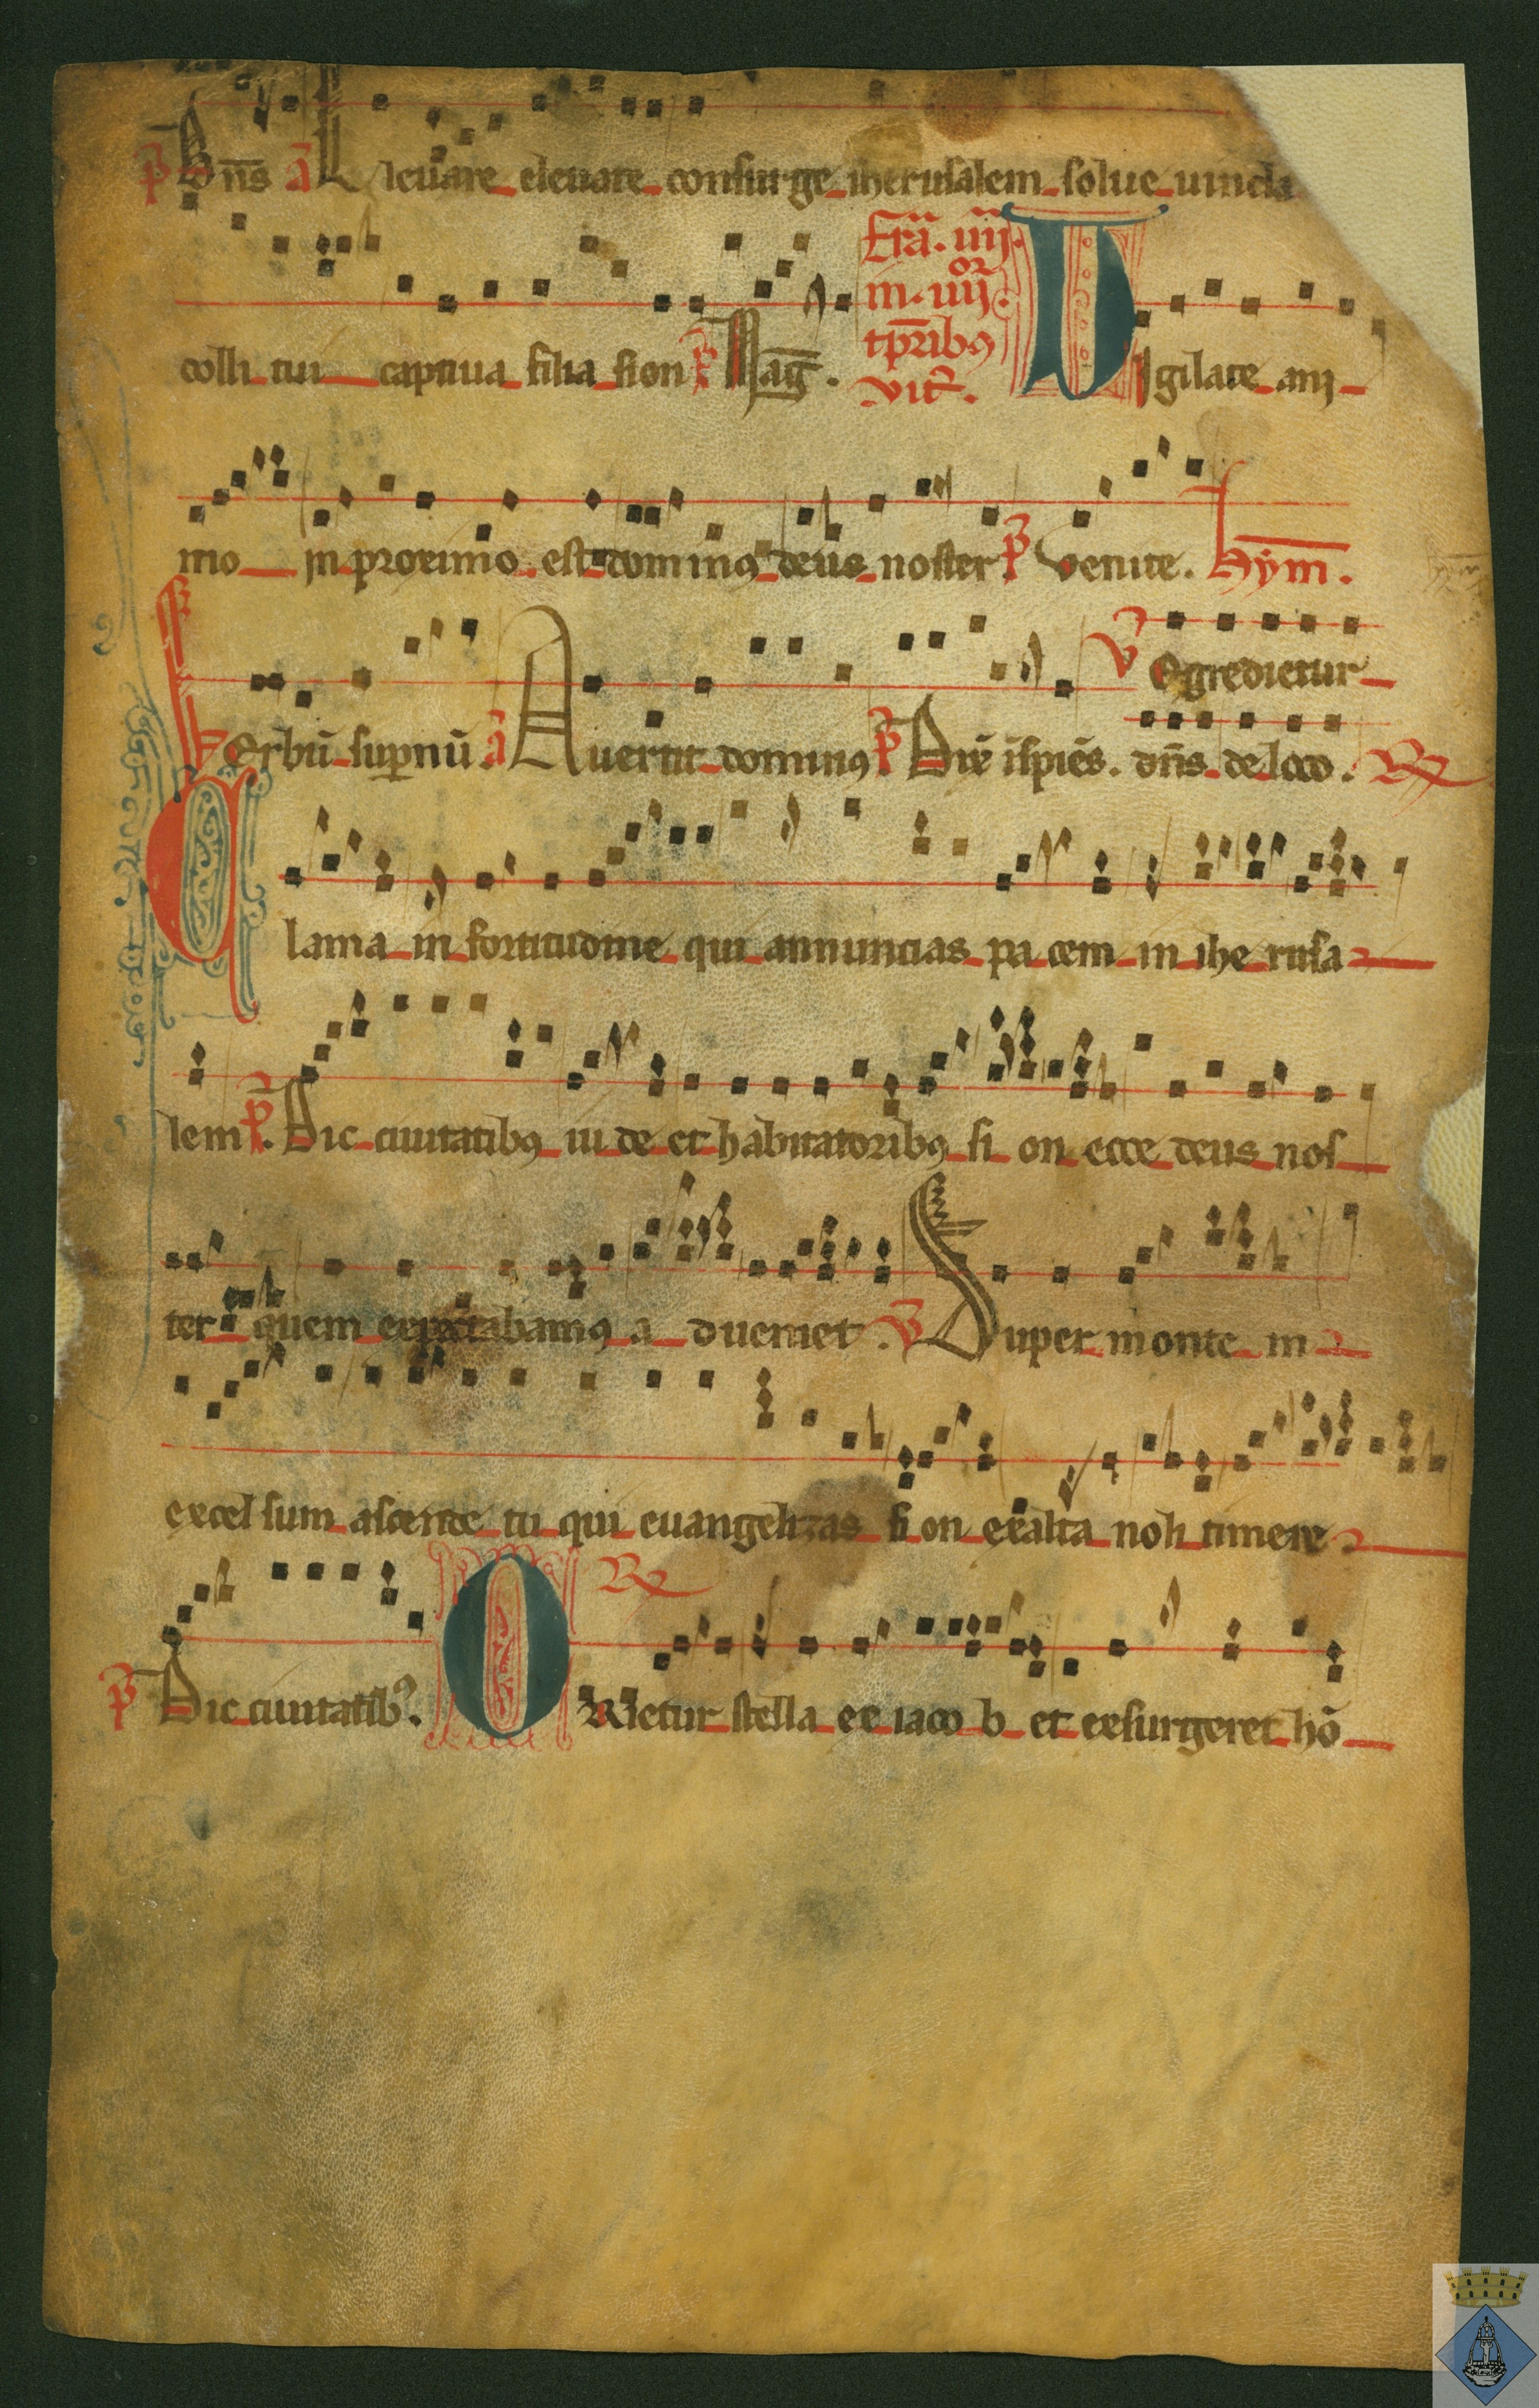 p̄ Dn̄s ā Eleuare eleuare consurge iherusalem solue uincla
colli tui captiua filia sion p̄ Maḡ.
Fr̄a. iiij.
in. iiij or
tp̄ribꝯ
vit̄.
VIgilate ani
mo in proximo est dominꝯ deus noster p̄ Venite. Hȳm.
VErbū suꝑnū. ā Auertit dominꝯ p̄ Dix̄ īspiēs. dn̄s de loco. ℟
℣ Egredietur
Clama in fortitudine qui annuncias pacem in iherusa
lem p̄. Dic ciuitatibꝯ iude et habitatoribꝯ sion ecce deus nos
ter quem expectabamꝯ adueniet. ℣ Super montem
excelsum ascende tu qui euangelizas sion exalta noli timere
p̄ Dic ciuitatibꝯ. ℟ ORietur stella ex iacob et exsurgeret hō